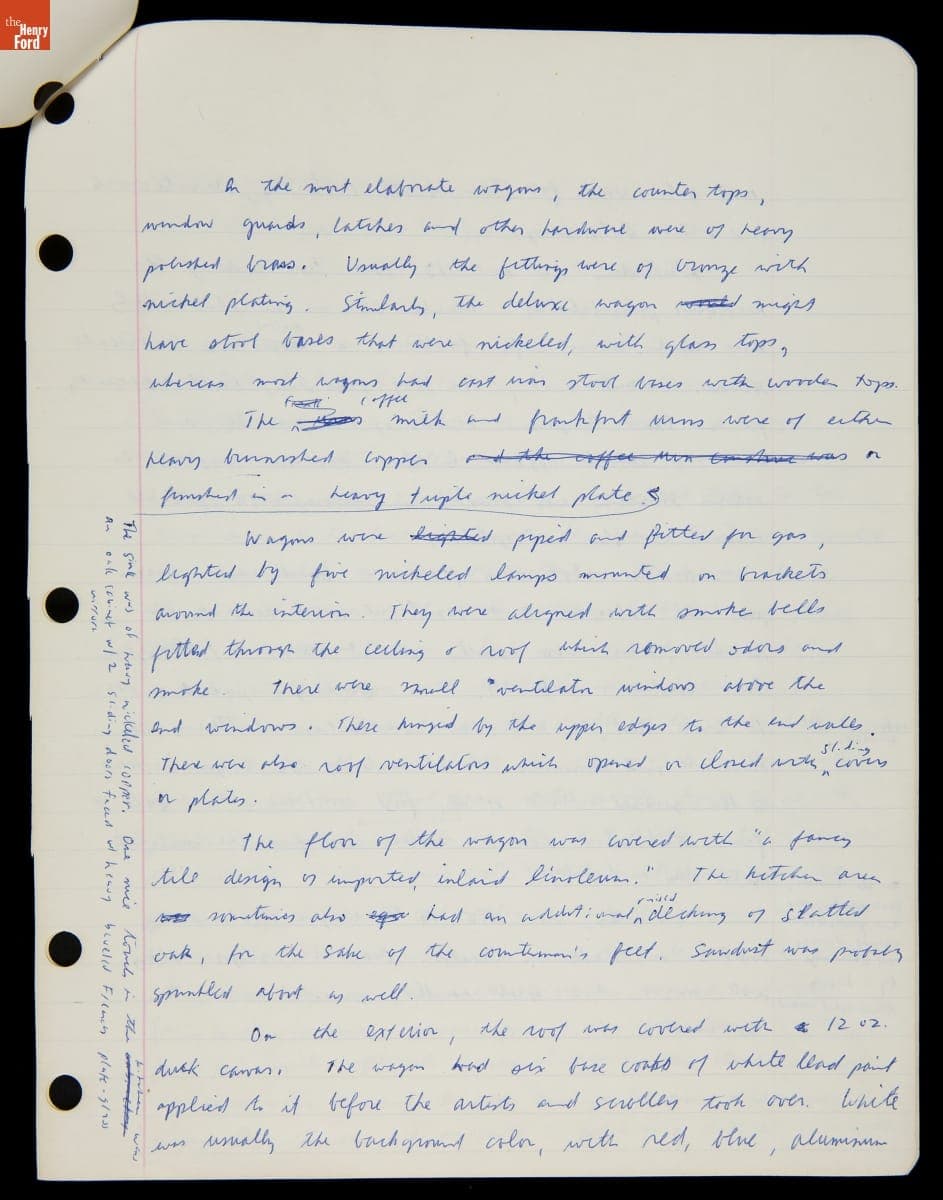 the
Henry
Ford
In the most elaborate wagons, the counter tops,
window guards, latches and other hardware were of heavy
polished brass. Usually the fittings were of bronze with
nickel plating. Similarly, the deluxe wagon would might
have stool bases that were nickeled, with glass tops,
whereas most wagons had cast iron stool bases with wooden tops.
coffee
The milk and frankfurt urns were of either
heavy burnished copper and the coffee urn was or
finished in a heavy triple nickel plate.
Wagons were lighted piped and fitted for gas,
lighted by five nickeled lamps mounted on brackets
around the interior. They were aligned with smoke bells
fitted through the ceiling & roof which removed odors and
smoke. There were small ventilator windows above the
end windows. These hinged by the upper edges to the end walls.
sliding
There were also roof ventilators which opened or closed with covers
or plates.
The floor of the wagon was covered with "a fancy
tile design of imported, inlaid linoleum." The kitchen area
raised
was sometimes also had an additional decking of slatted
oak, for the sake of the counterman's feet. Sawdust was probably
sprinkled about as well.
On the exterior, the roof was covered with a 12 oz.
duck canvas. The wagon had six base coats of white lead paint
applied to it before the artists and scrollers took over. White
was usually the background color, with red, blue, aluminum
The sink was of heavy nickeled copper. One nice touch in the kitchen was
an oak cabinet w/ 2 sliding doors faced w/ heavy beveled French plate-glass
mirrors